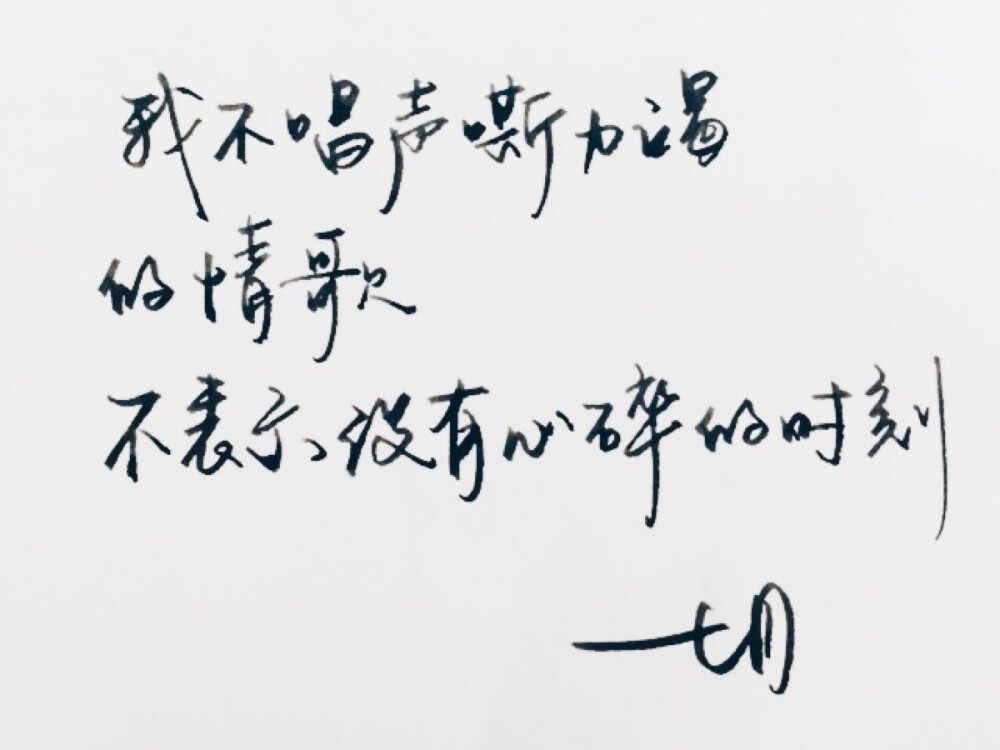 我不唱声嘶力谒
的情歌
不表示没有心碎的时刻
一七月